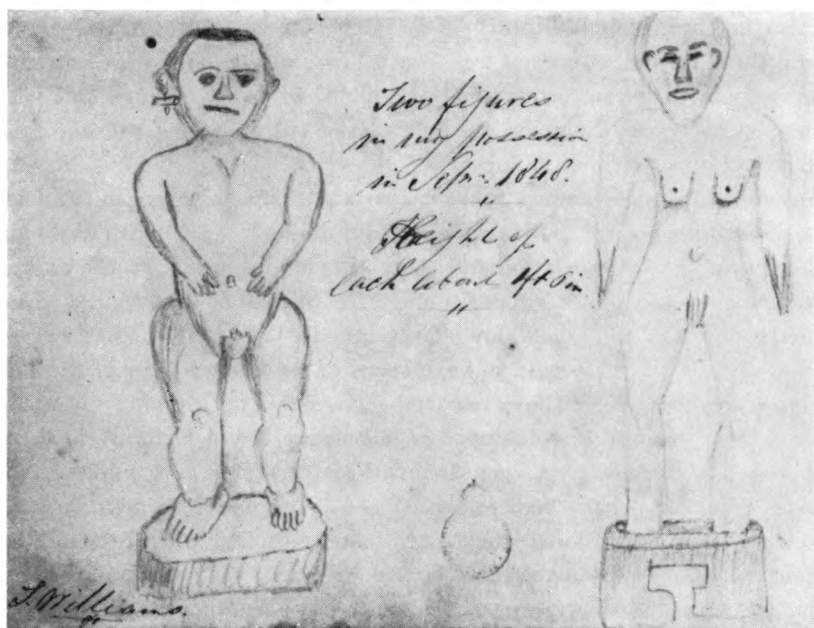 Two figures
in my possession
in Sepr. 1848.
"
Height of
each about 
"
T. Williams.